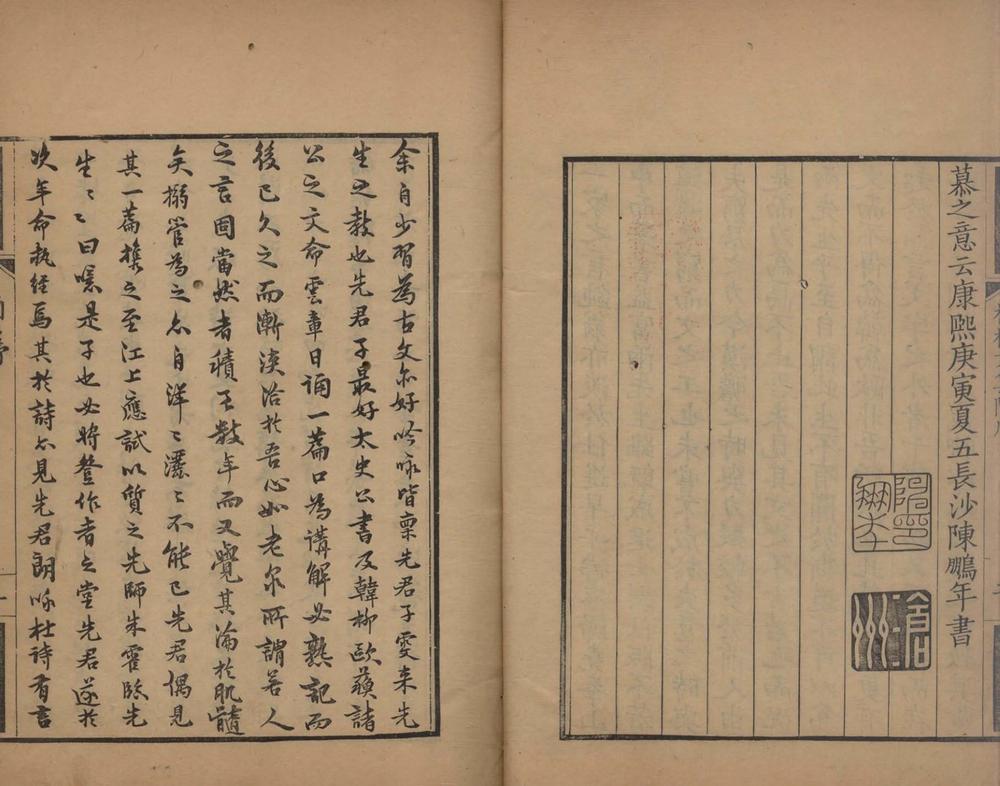 慕之意云康熙庚寅夏五長沙陳鵬年書
滄州
余自少習為古文亦好吟咏皆稟先君子雯来先
生之教也先君子最好太史公書及韓柳歐蘇諸
公之文命雲章日誦一篇口為講解必熟記而
後已久之而漸浹洽於吾心如老泉所謂若人
之言固當然者積至數年而又覺其淪於肌髓
矣搦管為之亦自洋〻灑〻不能已先君偶見
其一篇攜之至江上應試以質之先師朱霍臨先
生〻曰噫是子也必將登作者之堂先君遂於
次年命執經焉其於詩亦見先君朗咏杜詩有言